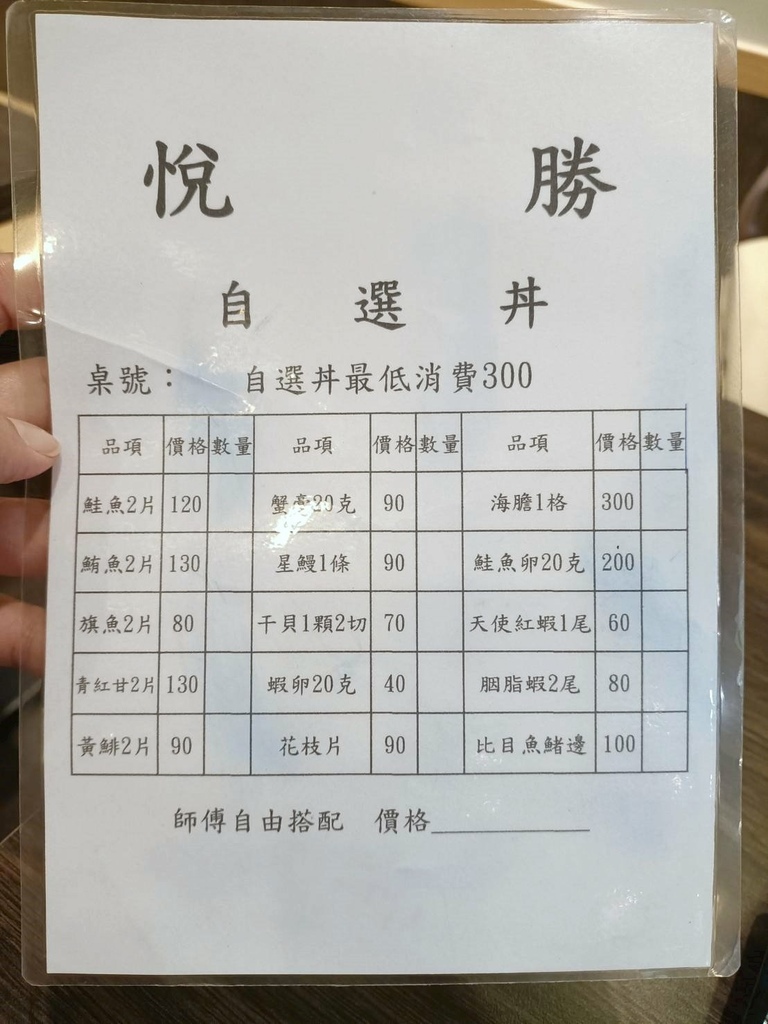 悅 勝
自 選 丼
桌號： 自選丼最低消費300
品項 價格 數量 品項 價格 數量 品項 價格 數量
鮭魚2片 120 蟹膏20克 90 海膽1格 300
鮪魚2片 130 星鰻1條 90 鮭魚卵20克 200
旗魚2片 80 干貝1顆2切 70 天使紅蝦1尾 60
青紅甘2片 130 蝦卵20克 40 胭脂蝦2尾 80
黃鯡2片 90 花枝片 90 比目魚鰭邊 100
師傅自由搭配 價格